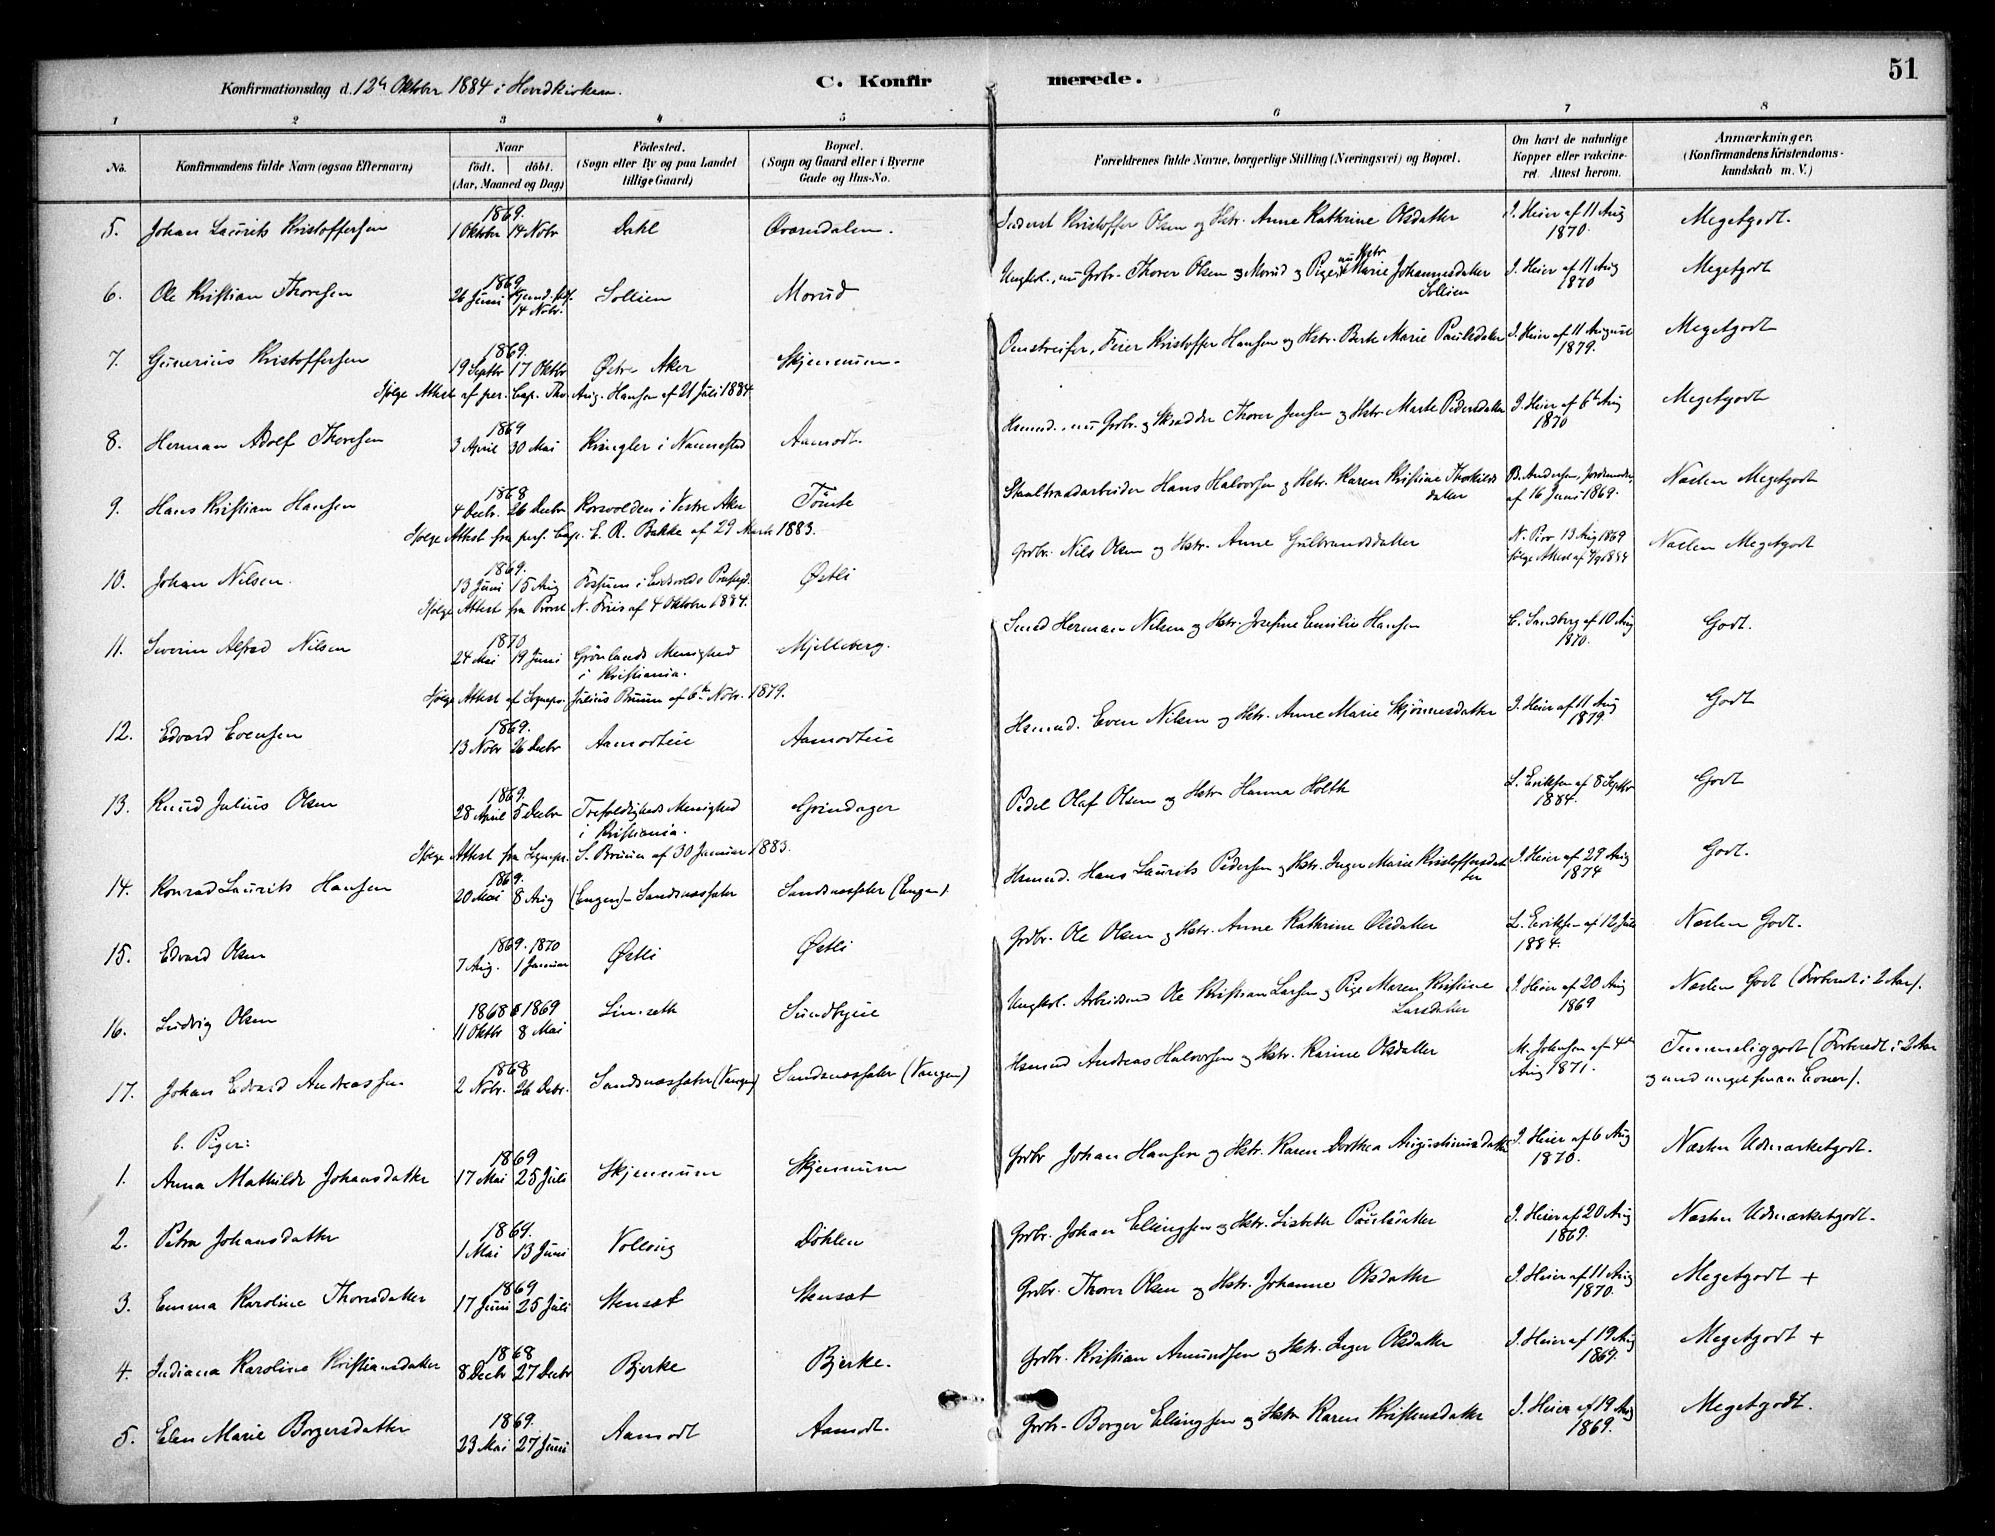 51
Konfirmationsdag d. 12te Oktober 1884 i Hovedkirken.
C. Konfirmerede.
1 2 3 4 5 6 7 8
No. Konfirmandens fulde Navn (ogsaa Efternavn)
Naar födt. döbt. (Aar, Maaned og Dag)
Födested. (Sogn eller By og paa Landet tillige Gaard)
Bopæl. (Sogn og Gaard eller i Byerne Gade og Hus-No.
Forældrenes fulde Navne, borgerlige Stilling (Næringsvei) og Bopæl.
Om havt de naturlige Kopper eller vakcineret. Attest herom.
Anmærkninger. (Konfirmandens Kristendomskundskab m. V.)
5. Johan Laurits Kristoffersen 1869. 1 Oktbr 14 Nobr Dahl Qværndalen. Inderst Kristoffer Olsen og Hstr. Anne Kathrine Olsdatter J. Heier af 11 Aug 1870. Megetgodt.
6. Ole Kristian Thoresen 1869. 26 Juni 14 Nobr. Sollien Morud Ungkol., nu Grbr. Thorer Olsen Morud og Pige, nu Hstr Marie Johannesdatter Sollien J. Heier af 11 Aug 1870 Megetgodt
7. Gunerius Kristoffersen 1869. 19 Septbr 17 Oktbr Østre Aker Skjennum. Omstreifer, Feier Kristoffer Hansen og Hstr. Berte Marie Paulsdatter J. Heier af 11 August 1879. Megetgodt
Ifølge Attest af pers. Cap. Th. Aug. Hansen af 21 Juli 1884.
8. Herman Adolf Thoresen 1869 3 April 30 Mai Kringler i Nannestad Aamodt. Hsmnd., nu Grbr. og Skrædder Thorer Jensen og Hstr Marte Pedersdatter J. Heier af 6te Aug 1870 Megetgodt
9. Hans Kristian Hansen 1868 4 Decbr. 26 Decbr Korsvolden i Vestre Aker Tömte Staaltraadarbeider Hans Halvorsen og Hstr. Karen Kristine Thorkildsdatter B. Andersen, Jordmoder, af 16 Juni 1869. Næsten Megetgodt
Ifølge Attest fra pers. Cap. E. R. Bakke af 29 Marts 1883.
10. Johan Nilsen. 1869. 13 Juni 15 Aug Fossum i Eidsvolds Prestegd. Østli Grbr. Nils Olsen og Hstr. Anne Gulbrandsdatter 13 Aug 1869 Næsten Megetgodt
Ifølge Attest fra Provst N. Friis af 4 Oktober 1884.
11. Severin Alfred Nilsen 1870 24 Mai 19 Juni Grönlands Menighed i Kristiania. Mjelleberg. Smed Herman Nilsen og Hstr. Josefine Emilie Hansen C. Sandberg af 10 Aug 1870. Godt.
Ifølge Attest af Sognepr. Julius Bruun af 6te Nobr. 1879.
12. Edvard Evensen 1869. 13 Nobr 26 Decbr Aamodteie Aamodteie Hsmnd. Even Nilsen og Hstr. Anne Marie Skjönnesdatter J. Heier af 11 Aug 1879. Godt
13. Knud Julius Olsen 1869. 28 April 5 Decbr Trefoldigheds Menighed i Kristiania. Grindager Pedel Olaf Olsen og Hstr Hanna Holth L. Eriksen af 8 Septbr 1884. Godt
Ifølge Attest fra Sognepr. S. Bruun af 30 Januar 1883.
14. Konrad Laurits Hansen 1869. 20 Mai 8 Aug (Engen) Sandsnæssæter Sandsnæssæter (Engen). Hsmnd. Hans Laurits Pedersen og Hstr. Inger Marie Kristoffersdatter J. Heier af 29 Aug 1874 Godt.
15. Edvard Olsen 1869. 1870 7 Aug. 1 Januar Østli Østli Grbr. Ole Olsen og Hstr. Anne Kathrine Olsdatter L. Eriksen af 12 Juli 1884. Næsten Godt.
16. Ludvig Olsen 1868 1869 11 Oktbr 8 Mai Linseth Sundbyeie Ungkol. Arbeidsmd Ole Kristian Larsen og Pige Maren Kristine Larsdatter J. Heier af 20 Aug 1869 Næsten Godt (Forberedt i 2 Aar).
17. Johan Edvard Andreassen 1868 2 Nobr. 26 Decbr. Sandsnæssæter (Vangen) Sandsnæssæter (Vangen) Hsmnd Andreas Halvorsen og Hstr. Karine Olsdatter M. Johnsen af 4de Aug 1871. Temmeliggodt (Forberedt i 2 Aar og med meget smaa Evner).
b. Piger:
1. Anna Mathilde Johansdatter 1869 17 Mai 25 Juli Skjennum Skjennum Grbr Johan Hansen og Hstr. Karen Dorthea Augustinusdatter J. Heier af 6 Aug 1870. Næsten Udmærketgodt.
2. Petra Johansdatter 1869. 1 Mai 13 Juni Vollaug Döhlen Grbr. Johan Elingsen og Hstr. Lisbeth Paulsdatter J. Heier af 20 Aug 1869. Næsten Udmærketgodt.
3. Emma Karoline Thoresdatter 1869 17 Juni 25 Juli Stensæt Stensæt Grbr. Thorer Olsen og Hstr. Johanne Olsdatter J. Heier af 11 Aug 1870. Megetgodt +
4. Indiana Karoline Kristiansdatter 1868 8 Decbr 27 Decbr Bjerke Bjerke. Grbr. Kristian Amundsen og Hstr. Inger Olsdatter J. Heier af 19 Aug 1869. Megetgodt +
5. Elen Marie Borgersdatter 1869. 23 Mai 27 Juni Aamodt Aamodt. Grbr. Borger Elingsen og Hstr Karen Kristensdatter J. Heier af 19 Aug 1869. Megetgodt.